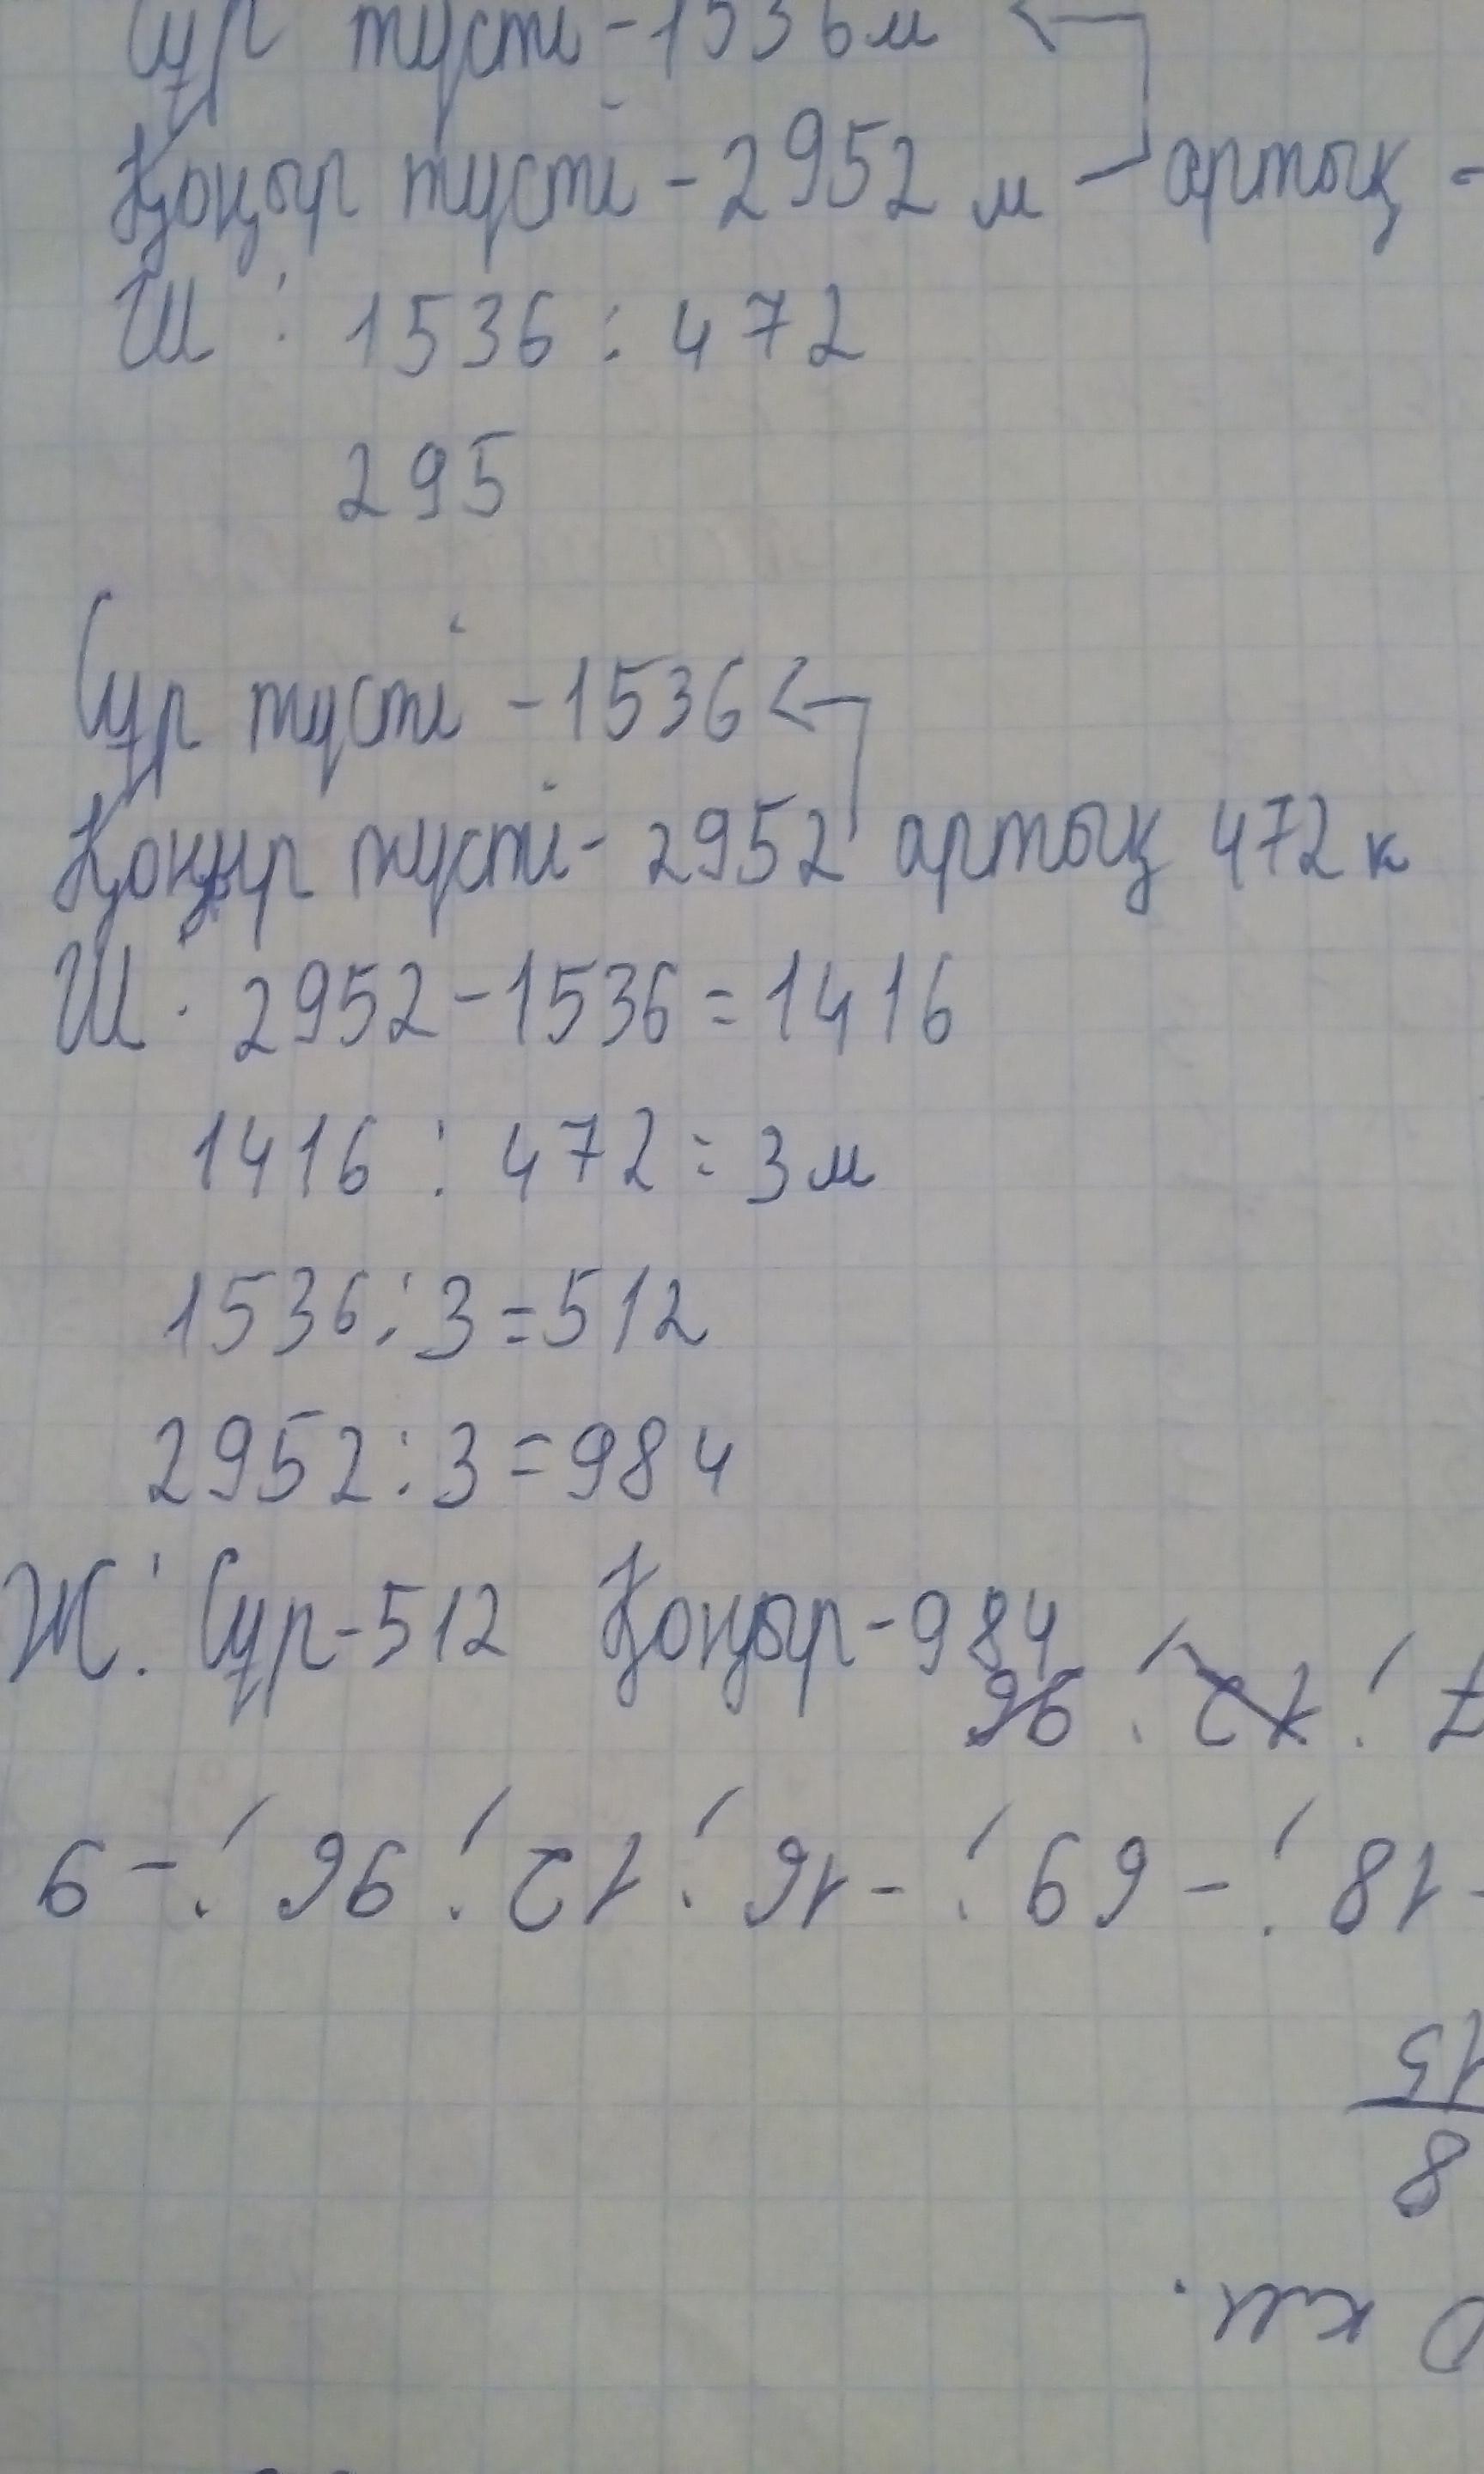 Сұр түсті - 1536 м
Қоңыр түсті - 2952 м артық -
Ш: 1536 : 472
295
Сұр түсті - 1536
Қоңыр түсті - 2952 артық 472 к
Ш: 2952 - 1536 = 1416
1416 : 472 = 3 м
1536 : 3 = 512
2952 : 3 = 984
Ж: Сұр - 512 Қоңыр - 984
7; 12; 96
-18; -69; -16; 12; 96; -9
8
15
км.